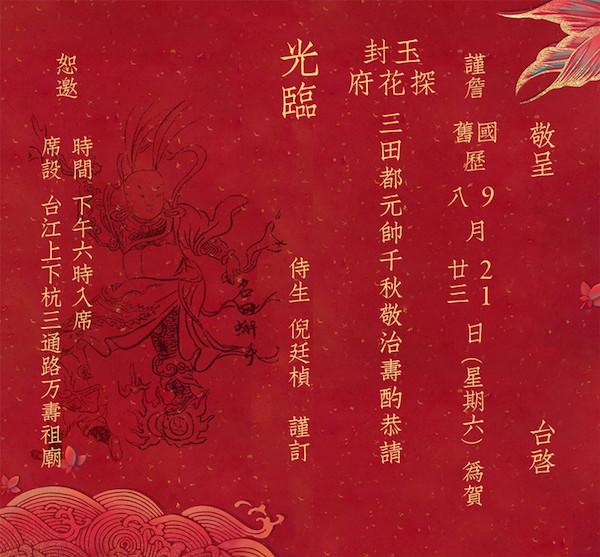 敬呈 台啓
謹詹 國舊歷 9月21日 八 廿三 (星期六) 爲賀
玉封探花府 三田都元帥千秋敬治壽酌恭請
光臨
侍生 倪廷楨 謹訂
時間 下午六時入席
席設 台江上下杭三通路万壽祖廟
恕邀